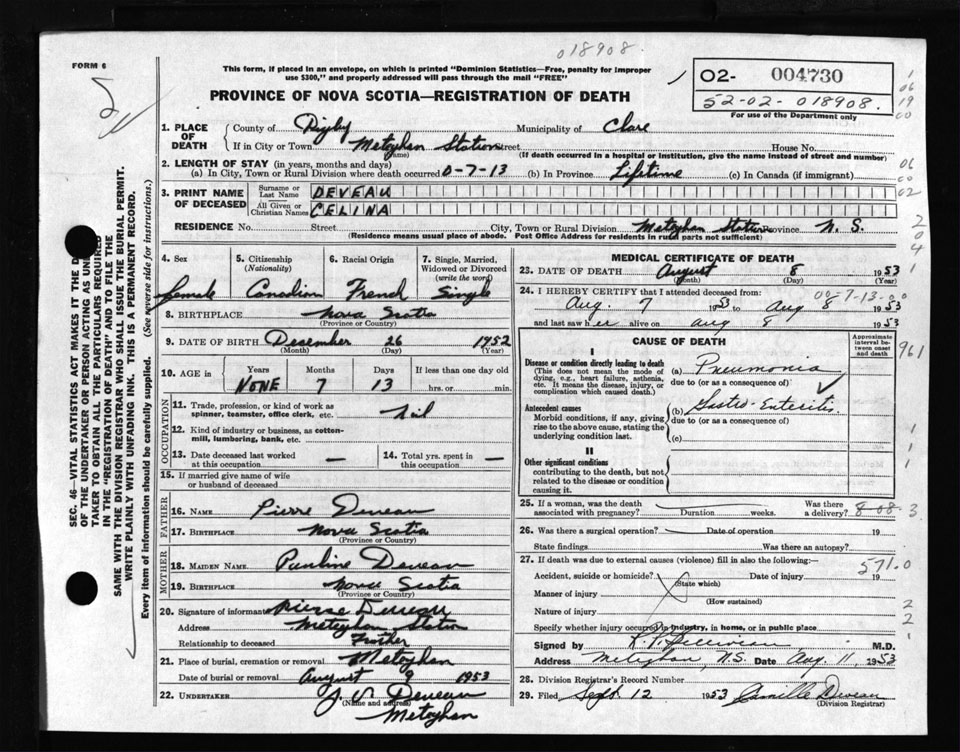 018908.
FORM 6
This form, if placed in an envelope, on which is printed "Dominion Statistics—Free, penalty for improper
use $300," and properly addressed will pass through the mail "FREE"
02- 004730
52-02-018908.
For use of the Department only
PROVINCE OF NOVA SCOTIA—REGISTRATION OF DEATH
SEC. 46 VITAL STATISTICS ACT MAKES IT THE D
OF THE UNDERTAKER OR PERSON ACTING AS UN
TAKER TO OBTAIN ALL THE PARTICULARS REQUIRED
IN THE "REGISTRATION OF DEATH" AND TO FILE THE
SAME WITH THE DIVISION REGISTRAR WHO SHALL ISSUE THE BURIAL PERMIT.
WRITE PLAINLY WITH UNFADING INK. THIS IS A PERMANENT RECORD.
Every item of information should be carefully supplied. (See reverse side for instructions.)
1. PLACE OF DEATH County of Digby Municipality of Clare
If in City or Town Meteghan Station Street House No.
(name) (If death occurred in a hospital or institution, give the name instead of street and number)
2. LENGTH OF STAY (in years, months and days)
(a) In City, Town or Rural Division where death occurred 0-7-13 (b) In Province Lifetime (c) In Canada (if immigrant)
3. PRINT NAME OF DECEASED Surname or Last Name DEVEAU
All Given or Christian Names CELINA
RESIDENCE No. Street City, Town or Rural Division Meteghan Station Province N. S.
(Residence means usual place of abode. Post Office Address for residents in rural parts not sufficient)
4. Sex 5. Citizenship (Nationality) 6. Racial Origin 7. Single, Married, Widowed or Divorced (write the word)
Female Canadian French Single
8. BIRTHPLACE Nova Scotia
(Province or Country)
9. DATE OF BIRTH December 26 1952
(Month) (Day) (Year)
10. AGE in Years Months Days If less than one day old
NONE 7 13 hrs. or min.
OCCUPATION
11. Trade, profession or kind of work as spinner, teamster, office clerk, etc. Nil
12. Kind of industry or business, as cotton-mill, lumbering, bank, etc.
13. Date deceased last worked at this occupation — 14. Total yrs. spent in this occupation —
15. If married give name of wife or husband of deceased
FATHER
16. NAME Pierre Deveau
17. BIRTHPLACE Nova Scotia
(Province or Country)
MOTHER
18. MAIDEN NAME Pauline Deveau
19. BIRTHPLACE Nova Scotia
(Province or Country)
20. Signature of informant Pierre Deveau
Address Meteghan Station
Relationship to deceased Father
21. Place of burial, cremation or removal Meteghan
Date of burial or removal August 9 1953
22. UNDERTAKER J. V. Deveau
(Name and address) Meteghan
MEDICAL CERTIFICATE OF DEATH
23. DATE OF DEATH August 8 1953
(Month) (Day) (Year)
24. I HEREBY CERTIFY that I attended deceased from: 00-7-13-00
Aug. 7 1953 to Aug 8 1953
and last saw her alive on Aug 8 1953
CAUSE OF DEATH
Approximate interval between onset and death
I
Disease or condition directly leading to death
(This does not mean the mode of dying, e.g., heart failure, asthenia, etc. It means the disease, injury, or complication which caused death.)
(a) Pneumonia
due to (or as a consequence of)
Antecedent causes
Morbid conditions, if any, giving rise to the above cause, stating the underlying condition last.
(b) Gastro-Enteritis
due to (or as a consequence of)
(c)
II
Other significant conditions
contributing to the death, but not related to the disease or condition causing it.
25. If a woman, was the death associated with pregnancy? Duration weeks. Was there a delivery? 8-08-3
26. Was there a surgical operation? Date of operation 19
State findings Was there an autopsy?
27. If death was due to external causes (violence) fill in also the following:— 571.0
Accident, suicide or homicide? Date of injury 19
(State which)
Manner of injury
(How sustained)
Nature of injury
Specify whether injury occurred in industry, in home, or in public place
Signed by M.D.
Address Meteghan, N.S. Date Aug. 11, 1953
28. Division Registrar's Record Number
29. Filed Sept. 12 1953 Camille Deveau
(Division Registrar)
961